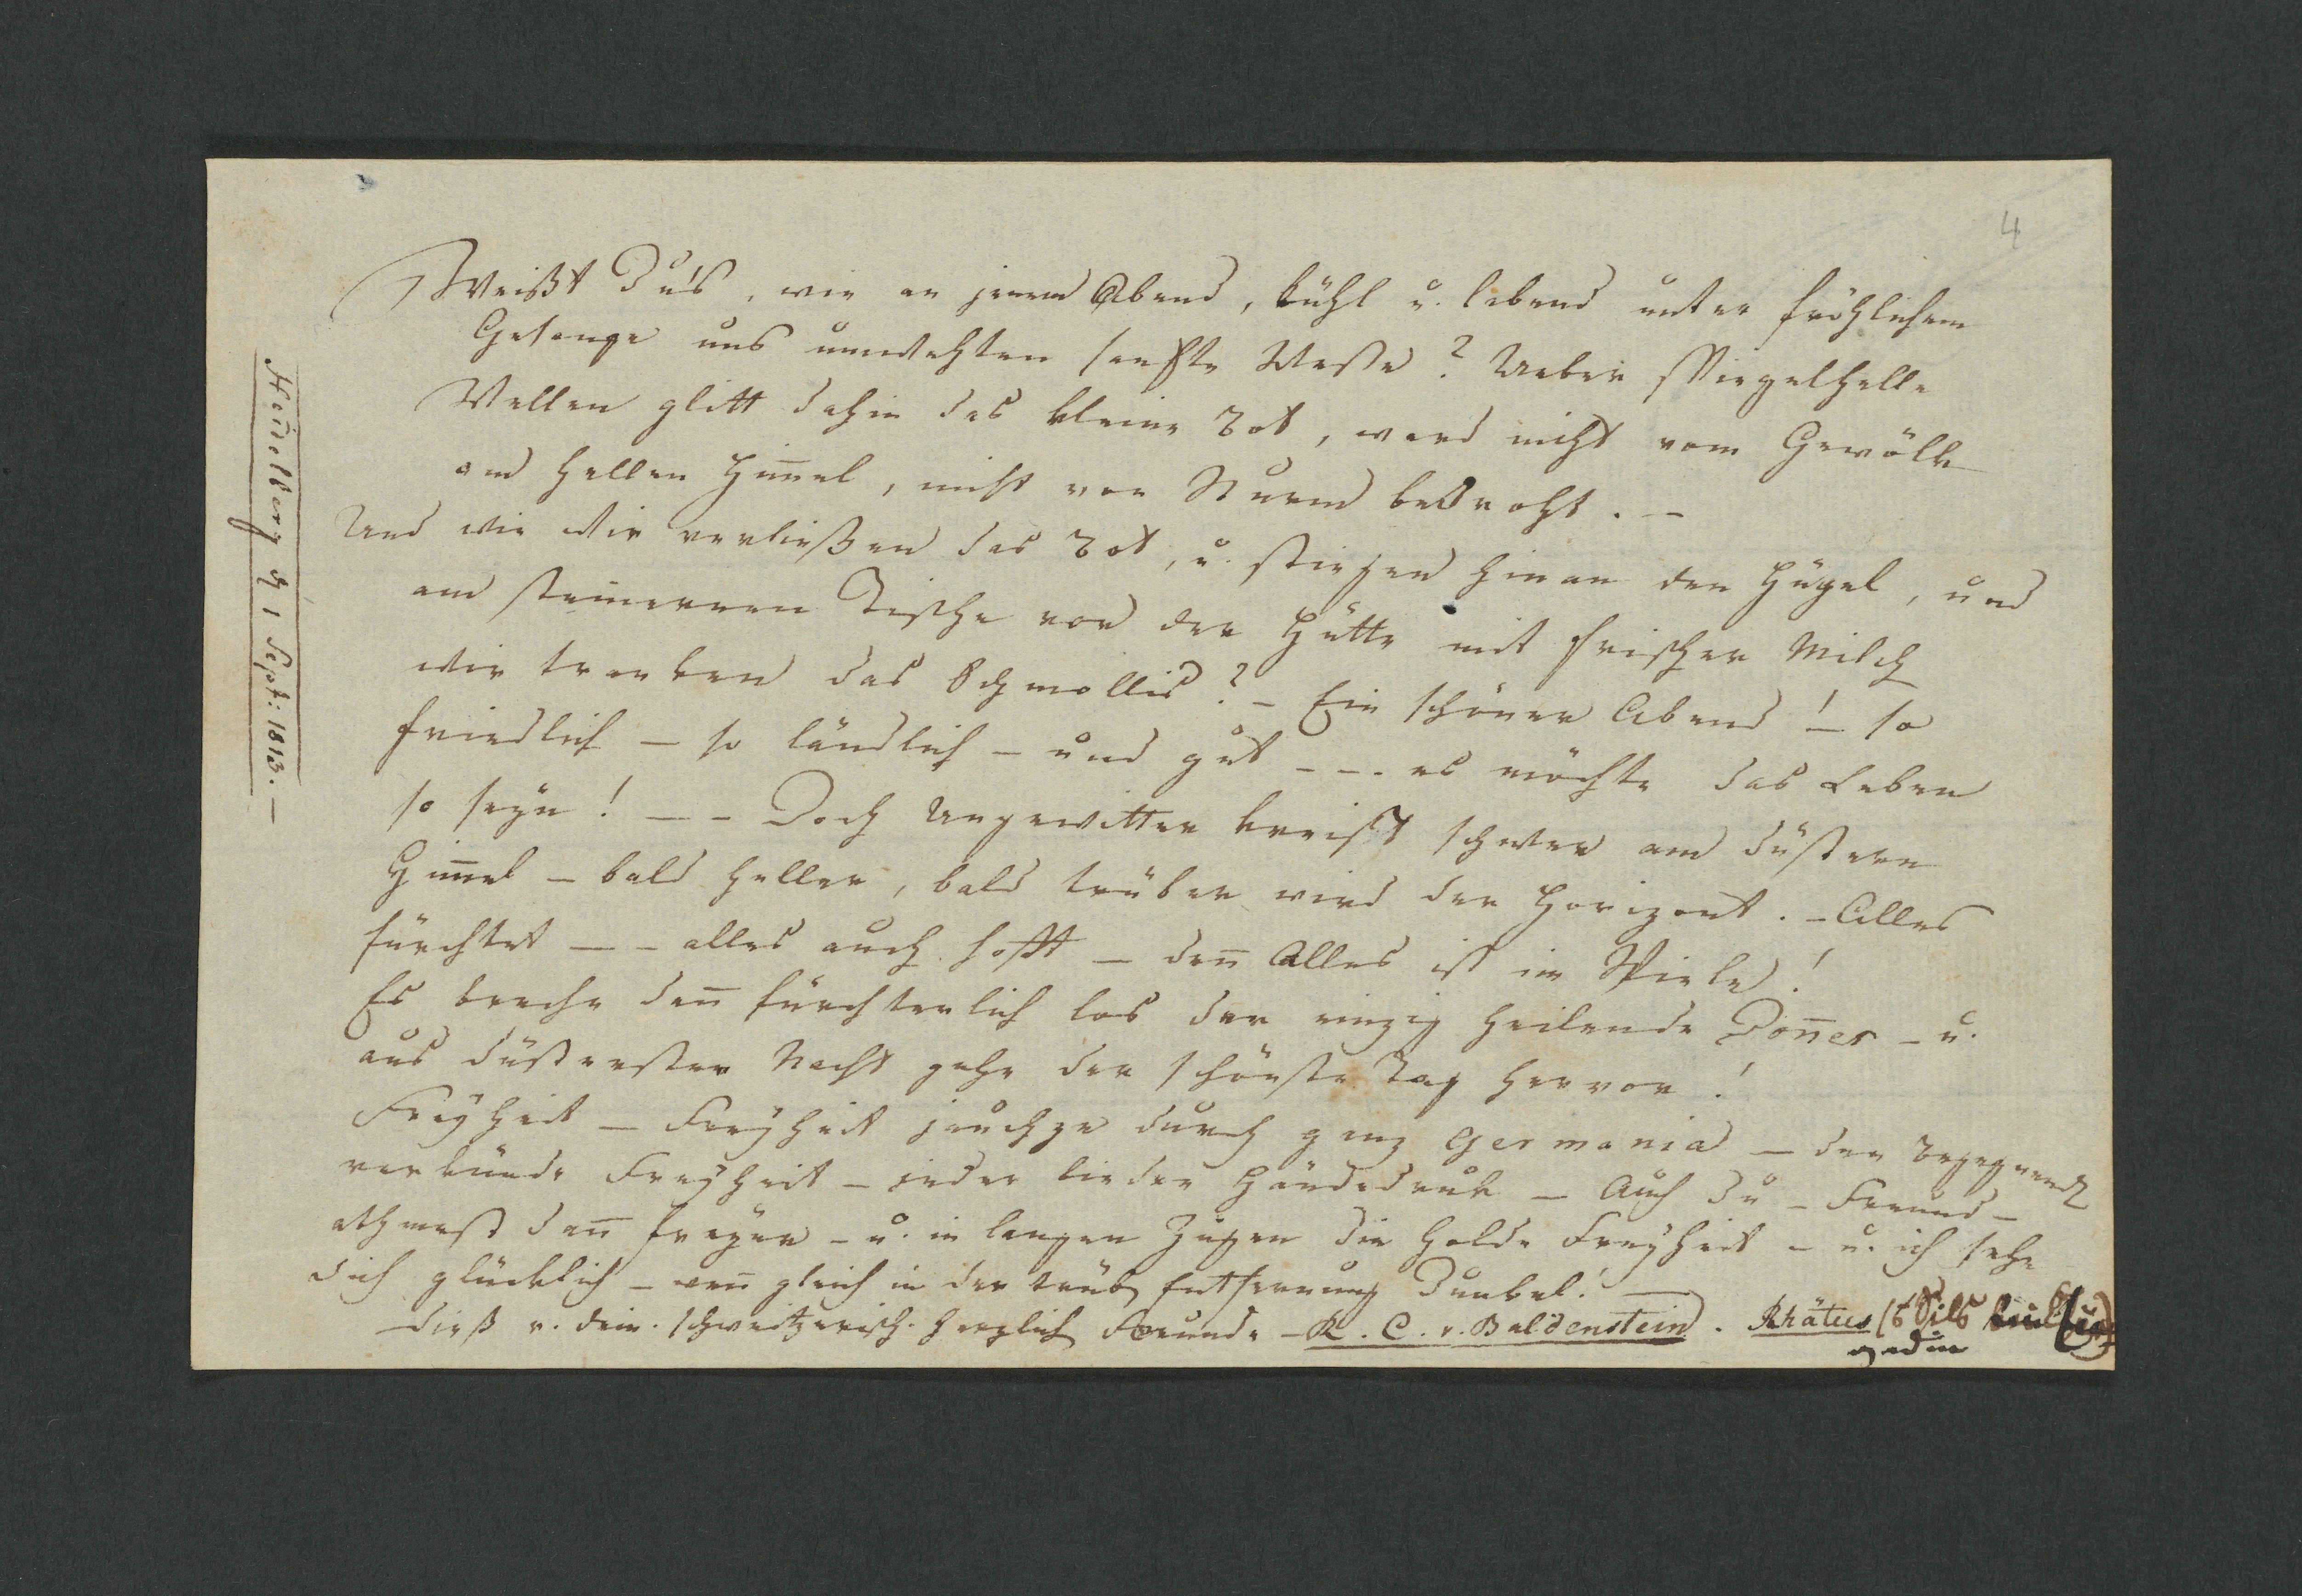 4
Weißt Du's, wie an jenem Abend, kühl u. labend unter fröhlichem
Gesange uns umwehten sanfte Weste? Ueber spiegelhelle
Wellen glitt dahin das kleine Bot, ward nicht vom Gewölk
am hellen Him̅el, nicht von Sturm bedroht. –
Und wie wir verließen das Bot, u. stiegen hinan den Hügel, und
am steinernen Tische vor der Hütte mit frischer Milch
wir tranken das Schmollis? – Ein schöner Abend! – so
friedlich – so ländlich – und gut – – . es möchte das Leben
so seyn! – – Doch Ungewitter kreist schwer am düstern
Him̅el – bald heller, bald trüber wird der Horizont. – Alles
fürchtet – – alles auch hofft – den̅ Alles ist im Spiele!
Es breche den̅ fürchterlich los der einzig heilende Don̅er – u.
aus düsterster Nacht gehe der schönste Tag hervor!
Freyheit – Freyheit jauchze durch ganz Germania – der Begegnende
verkünde Freyheit – jeder Lieder Händedruk – Auch du – Freund –
athmest dan̅ freyer – u. in langen Zügen die holde Freyheit – u. ich sehe
dich glücklich – wen̅ gleich in der trüb Entfernung Dunkel! –
Dieß v. dein. schweitzerisch. herzlich Freunde – K. C. v. Baldenstein. Rhätus
Heidelberg d 1 Sept: 1813. –